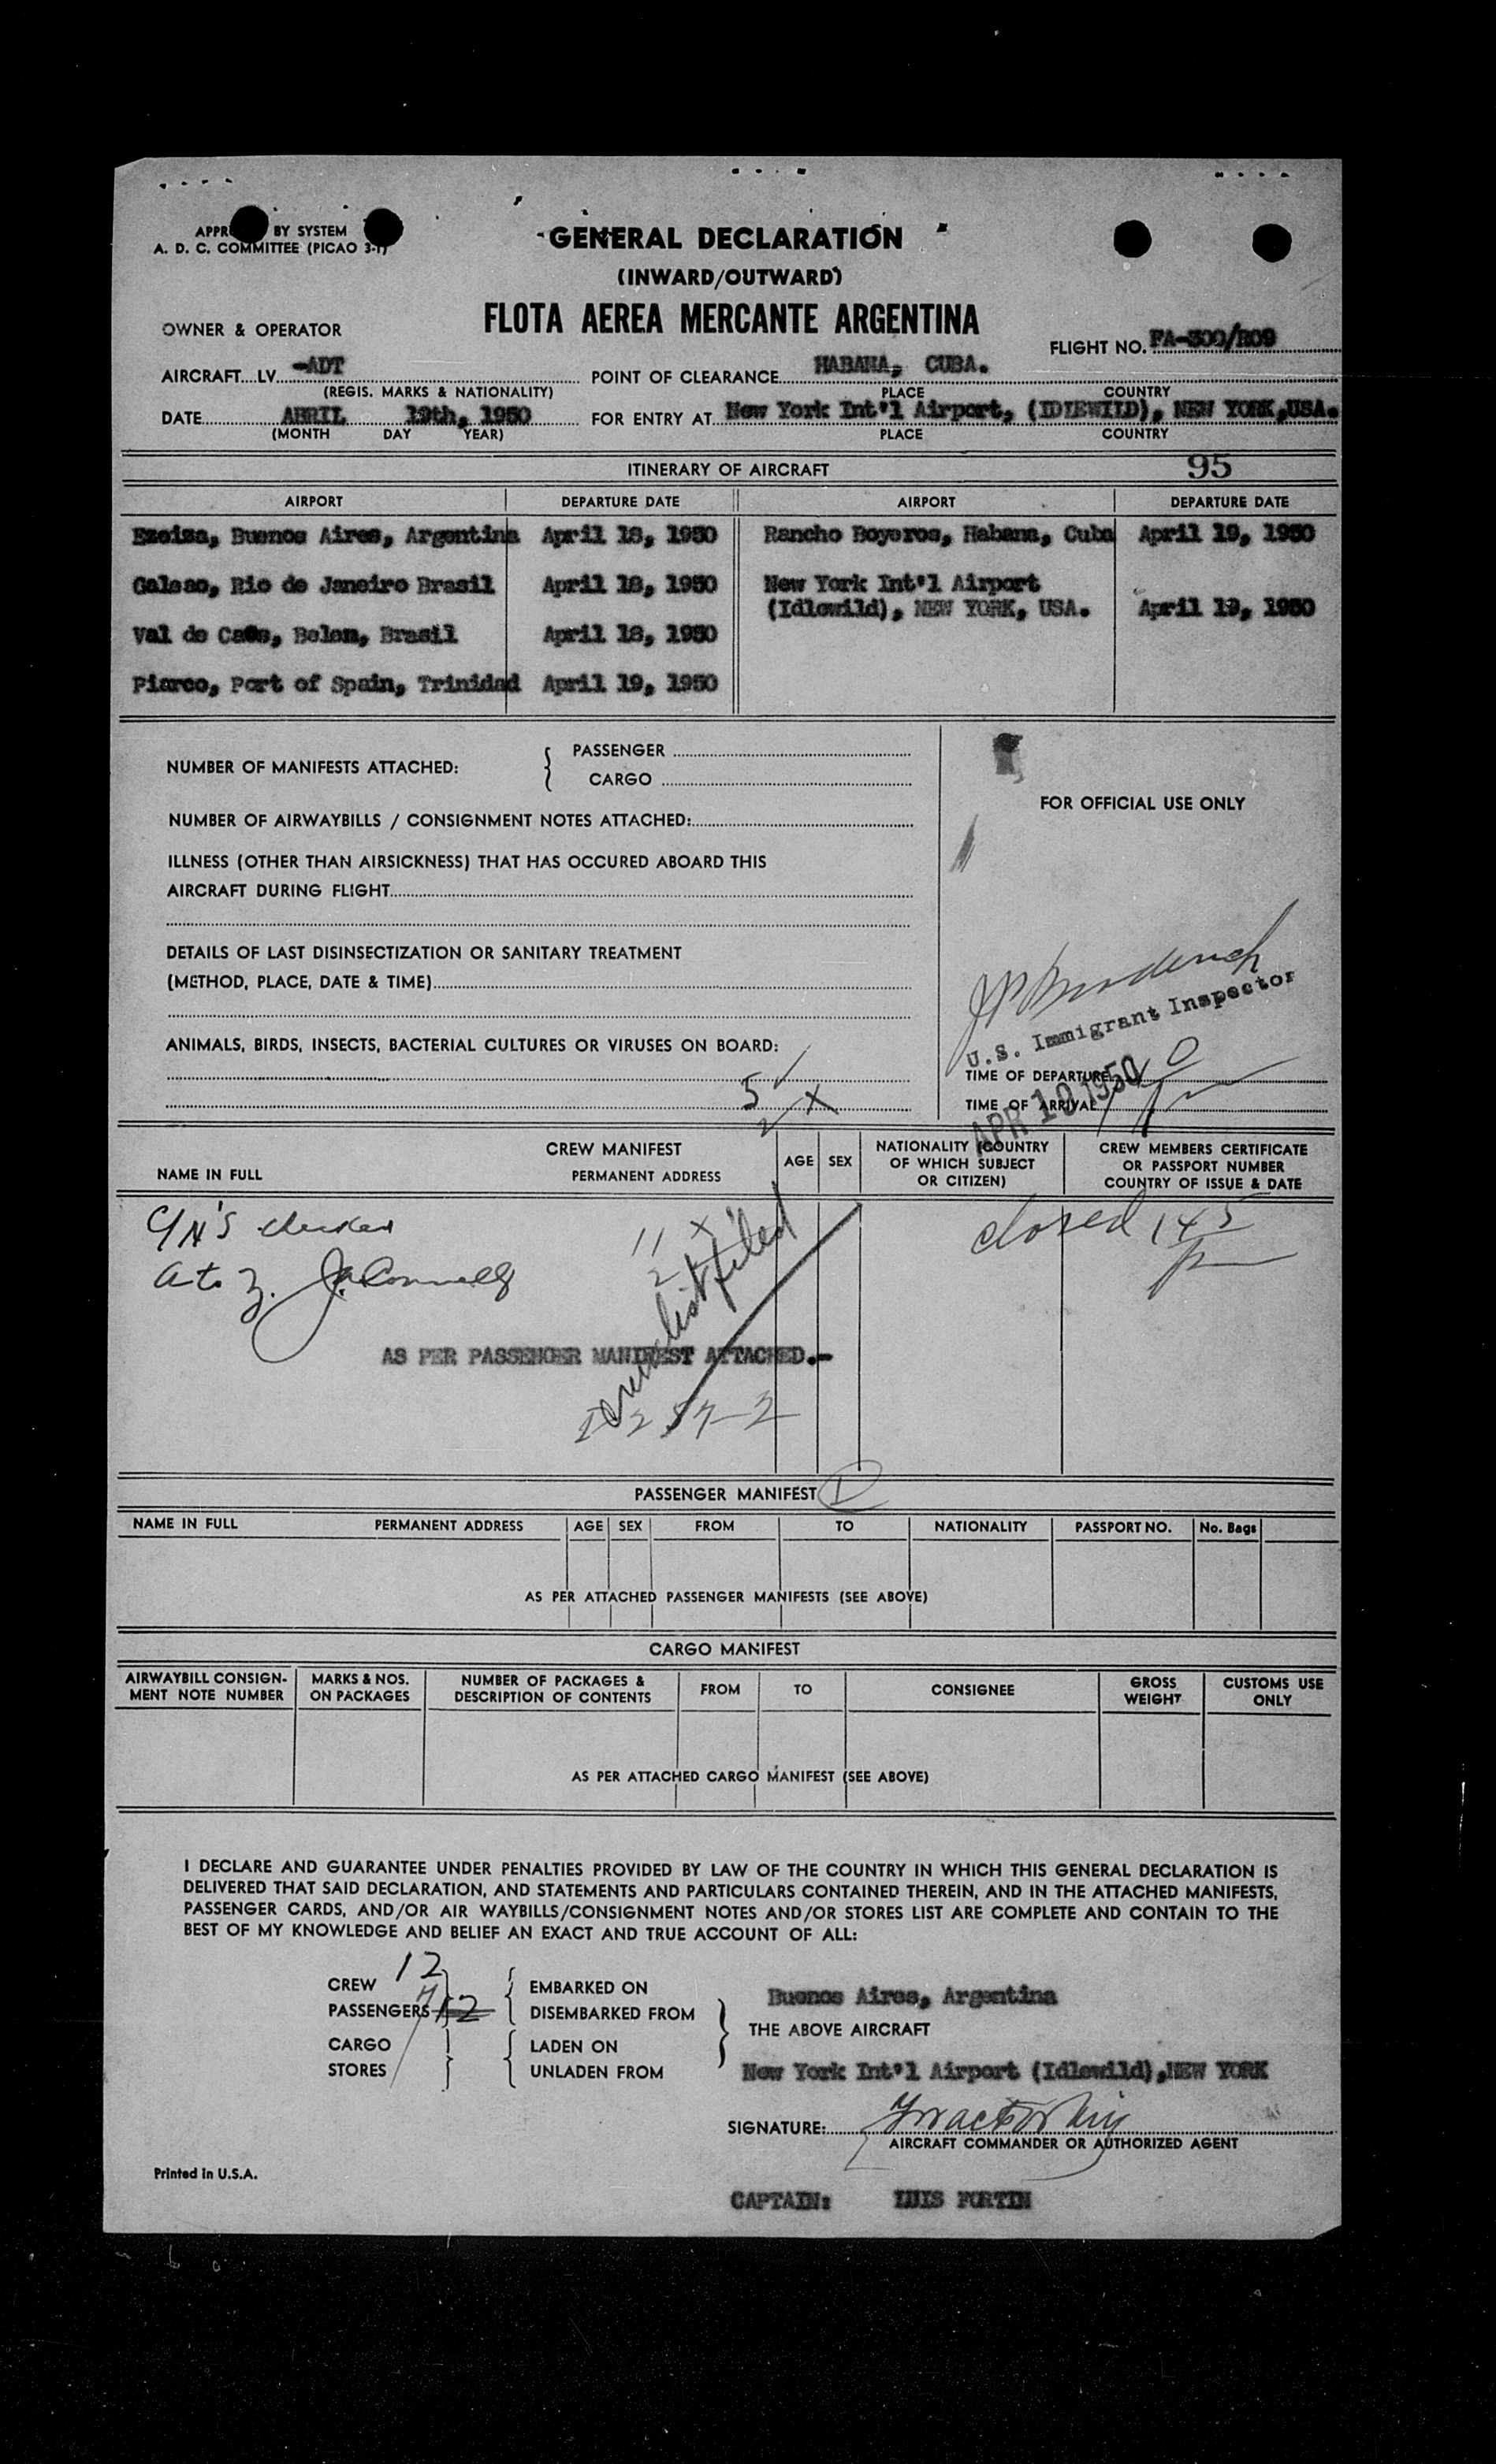 APPR BY SYSTEM
A. D. C. COMMITTEE (PICAO 3-1)
GENERAL DECLARATION
(INWARD/OUTWARD)
FLOTA AEREA MERCANTE ARGENTINA
OWNER & OPERATOR
FLIGHT NO. FA-300/R09
AIRCRAFT...LV. -ADT POINT OF CLEARANCE HABANA, CUBA.
(REGIS. MARKS & NATIONALITY) PLACE COUNTRY
DATE ABRIL 19th, 1950 FOR ENTRY AT New York Int'l Airport, (IDIEWILD), NEW YORK,USA.
(MONTH DAY YEAR) PLACE COUNTRY
ITINERARY OF AIRCRAFT 95
AIRPORT DEPARTURE DATE AIRPORT DEPARTURE DATE
Ezeiza, Buenos Aires, Argentina April 18, 1950 Rancho Boyeros, Habana, Cuba April 19, 1950
Galeao, Rio de Janeiro Brasil April 18, 1950 New York Int'l Airport
(Idlewild), NEW YORK, USA. April 19, 1950
Val de Caes, Belem, Brasil April 18, 1950
Piarco, Port of Spain, Trinidad April 19, 1950
NUMBER OF MANIFESTS ATTACHED: PASSENGER
CARGO
FOR OFFICIAL USE ONLY
NUMBER OF AIRWAYBILLS / CONSIGNMENT NOTES ATTACHED:
ILLNESS (OTHER THAN AIRSICKNESS) THAT HAS OCCURED ABOARD THIS
AIRCRAFT DURING FLIGHT
DETAILS OF LAST DISINSECTIZATION OR SANITARY TREATMENT
(METHOD, PLACE, DATE & TIME)
U.S. Immigrant Inspector
ANIMALS, BIRDS, INSECTS, BACTERIAL CULTURES OR VIRUSES ON BOARD:
TIME OF DEPARTURE
5 X
TIME OF ARRIVAL
APR 10 1950
CREW MANIFEST
NAME IN FULL PERMANENT ADDRESS AGE SEX NATIONALITY (COUNTRY OF WHICH SUBJECT OR CITIZEN) CREW MEMBERS CERTIFICATE OR PASSPORT NUMBER COUNTRY OF ISSUE & DATE
closed 145
11 X
a to z.
crew list filed
AS PER PASSENGER MANIFEST ATTACHED.-
PASSENGER MANIFEST
NAME IN FULL PERMANENT ADDRESS AGE SEX FROM TO NATIONALITY PASSPORT NO. No. Bags
AS PER ATTACHED PASSENGER MANIFESTS (SEE ABOVE)
CARGO MANIFEST
AIRWAYBILL CONSIGN-MENT NOTE NUMBER MARKS & NOS. ON PACKAGES NUMBER OF PACKAGES & DESCRIPTION OF CONTENTS FROM TO CONSIGNEE GROSS WEIGHT CUSTOMS USE ONLY
AS PER ATTACHED CARGO MANIFEST (SEE ABOVE)
I DECLARE AND GUARANTEE UNDER PENALTIES PROVIDED BY LAW OF THE COUNTRY IN WHICH THIS GENERAL DECLARATION IS
DELIVERED THAT SAID DECLARATION, AND STATEMENTS AND PARTICULARS CONTAINED THEREIN, AND IN THE ATTACHED MANIFESTS,
PASSENGER CARDS, AND/OR AIR WAYBILLS/CONSIGNMENT NOTES AND/OR STORES LIST ARE COMPLETE AND CONTAIN TO THE
BEST OF MY KNOWLEDGE AND BELIEF AN EXACT AND TRUE ACCOUNT OF ALL:
CREW 12 EMBARKED ON Buenos Aires, Argentina
PASSENGERS DISEMBARKED FROM
THE ABOVE AIRCRAFT
CARGO LADEN ON
STORES UNLADEN FROM New York Int'l Airport (Idlewild),NEW YORK
SIGNATURE:
AIRCRAFT COMMANDER OR AUTHORIZED AGENT
Printed in U.S.A.
CAPTAIN: LUIS FORTIN